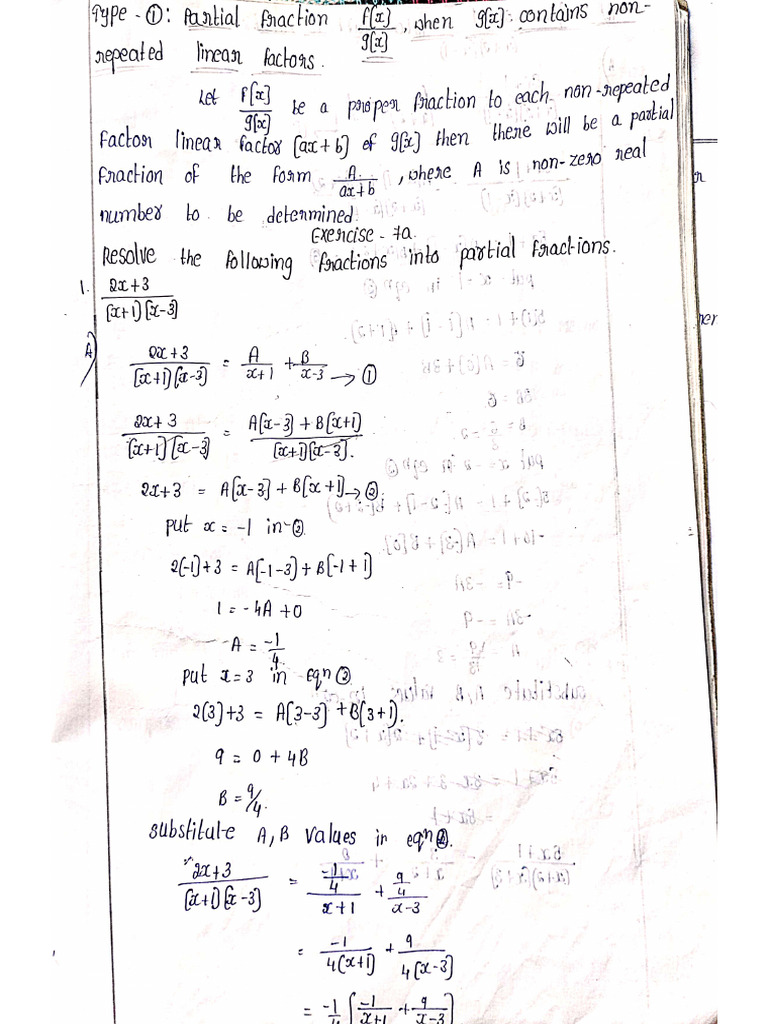 Type - ①: Partial fraction f[x]/g[x], when g[x] contains non-
repeated linear factors.
Let f[x]/g[x] be a proper fraction to each non-repeated
factor linear factor [ax+b] of g[x] then there will be a partial
fraction of the form A/ax+b, where A is non-zero real
number to be determined.
Exercise - 7a.
Resolve the following fractions into partial fractions.
1. 2x+3/[x+1][x-3]
A) 2x+3/[x+1][x-3] = A/x+1 + B/x-3 → ①
2x+3/[x+1][x-3] = A[x-3]+B[x+1]/[x+1][x-3].
2x+3 = A[x-3]+B[x+1] → ②
put x = -1 in ②
2(-1)+3 = A[-1-3]+B[-1+1]
1 = -4A+0
A = -1/4
put x=3 in eqn ②
2(3)+3 = A[3-3]+B[3+1].
9 = 0+4B
B = 9/4.
substitute A, B values in eqn ②.
2x+3/[x+1][x-3] = -1/4/x+1 + 9/4/x-3
= -1/4(x+1) + 9/4[x-3]
= -1/4 [-1/x+1 + 9/x-3]